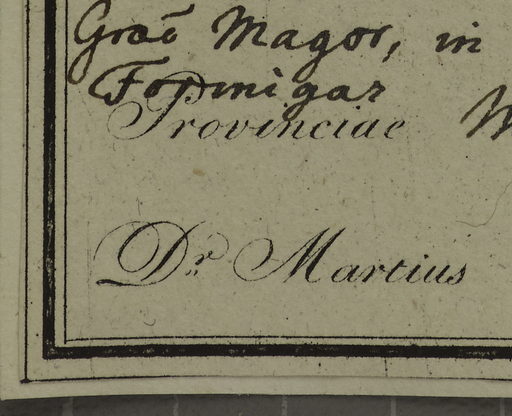 Grão Magor, in
Formigas
Provinciae
Dr. Martius